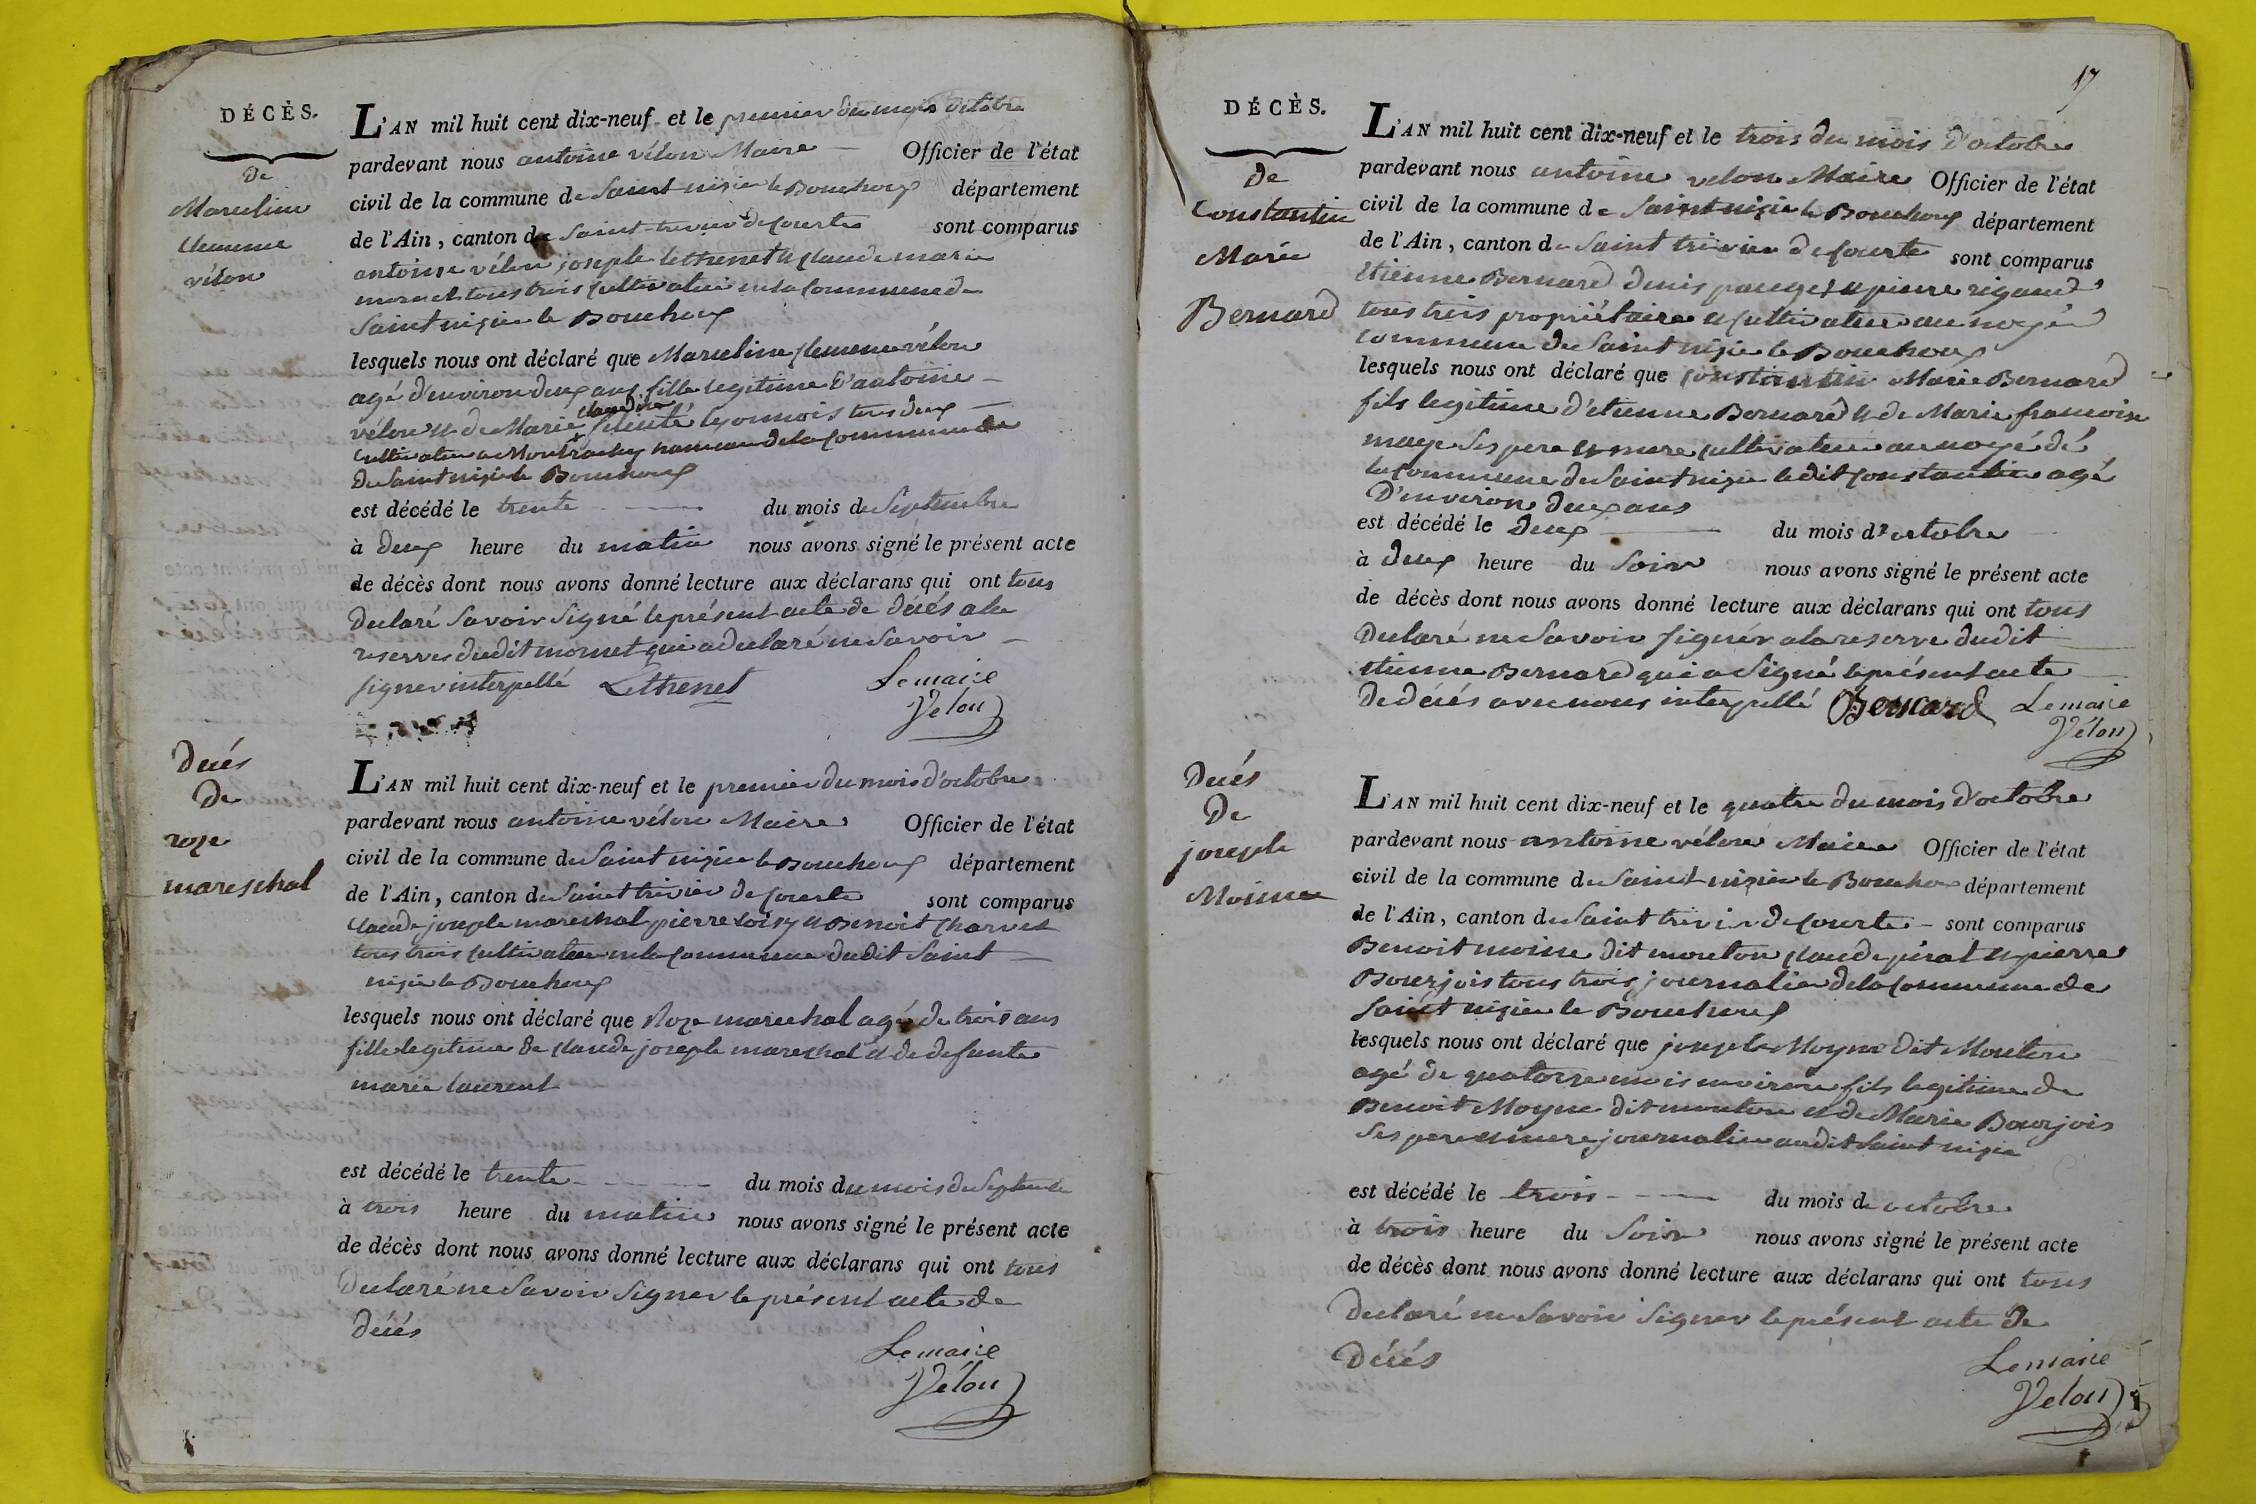 DÉCÈS.
De
Marceline
Clemence
vélon
L'AN mil huit cent dix-neuf et le premier du mois octobre
pardevant nous antoine vélon Maire Officier de l'état
civil de la commune de Saint nizier le Bouchoux département
de l'Ain, canton de Saint trivier de Courte sont comparus
antoine vélon joseph lethenet et claude marie
mornet tous trois cultivateur en la commune de
Saint nizier le Bouchoux
lesquels nous ont déclaré que Marceline clemence vélon
agé d'environ deux ans fille legitime d'antoine
claudine
vélon et de Marie lyonnois tous deux
cultivateur a hameau de la commune de
de Saint nizier le Bouchoux
est décédé le trente du mois de Septembre
à deux heure du matin nous avons signé le présent acte
de décès dont nous avons donné lecture aux déclarans qui ont tous
declaré Savoir Signé le présent acte de décés a la
reserves dudit mornet qui a declaré ne Savoir
signer interpellé Lethenet Le maire
Vélon
Décés
De
roze
mareschal
L'AN mil huit cent dix-neuf et le premier du mois d'octobre
pardevant nous antoine vélon Maire Officier de l'état
civil de la commune de Saint nizier le Bouchoux département
de l'Ain, canton de Saint trivier de Courte sont comparus
claude joseph mareschal pierre loisy et Benoit Charvet
tous trois cultivateur en la commune dudit Saint
nizier le Bouchoux
lesquels nous ont déclaré que Roze mareschal agé de trois ans
fille legitime de claude joseph mareschal et de defunte
marie laurent
est décédé le trente du mois du mois de Septembre
à trois heure du matin nous avons signé le présent acte
de décès dont nous avons donné lecture aux déclarans qui ont tous
Declaré ne Savoir Signer le présent acte de
décés
Le maire
Vélon
17
DÉCÈS.
De
Constantin
Marie
Bernard
L'AN mil huit cent dix-neuf et le trois du mois d'octobre
pardevant nous antoine velon Maire Officier de l'état
civil de la commune de Saint nizier le Bouchoux département
de l'Ain, canton de Saint trivier de Courte sont comparus
Etienne Bernard denis pauget et pierre rigaud
tous trois propriétaire et cultivateur au noyé
commune de Saint nizier le Bouchoux
lesquels nous ont déclaré que constantin Marie Bernard
fils legitime d'etienne Bernard et de Marie francoise
maye Ses pere et mere cultivateur au noyé de
la commune de Saint nizier ledit constantin agé
D'environ deux ans
est décédé le deux du mois d'octobre
à deux heure du Soir nous avons signé le présent acte
de décès dont nous avons donné lecture aux déclarans qui ont tous
Declaré ne Savoir signér a la reserve dudit
etienne Bernard qui a Signé le présent acte
De décés avec nous interpellé Bernard Le maire
Vélon
Décés
De
joseph
Moinne
L'AN mil huit cent dix-neuf et le quatre du mois d'octobre
pardevant nous antoine vélon Maire Officier de l'état
civil de la commune de Saint nizier le Bouchoux département
de l'Ain, canton de Saint trivier de Courte sont comparus
Benoit moine dit mouton claude pirat et pierre
Bourjois tous trois journalier de la commune de
Saint nizier le Bouchoux
lesquels nous ont déclaré que joseph Moyne dit Mouton
agé de quatorze mois environ fils legitime de
Benoit Moyne dit mouton et de Marie Bourjois
Ses pere et mere journalier audit Saint nizier
est décédé le trois du mois de octobre
à trois heure du Soir nous avons signé le présent acte
de décès dont nous avons donné lecture aux déclarans qui ont tous
Declaré ne Savoir Signer le présent acte de
Décés
Le maire
Velon